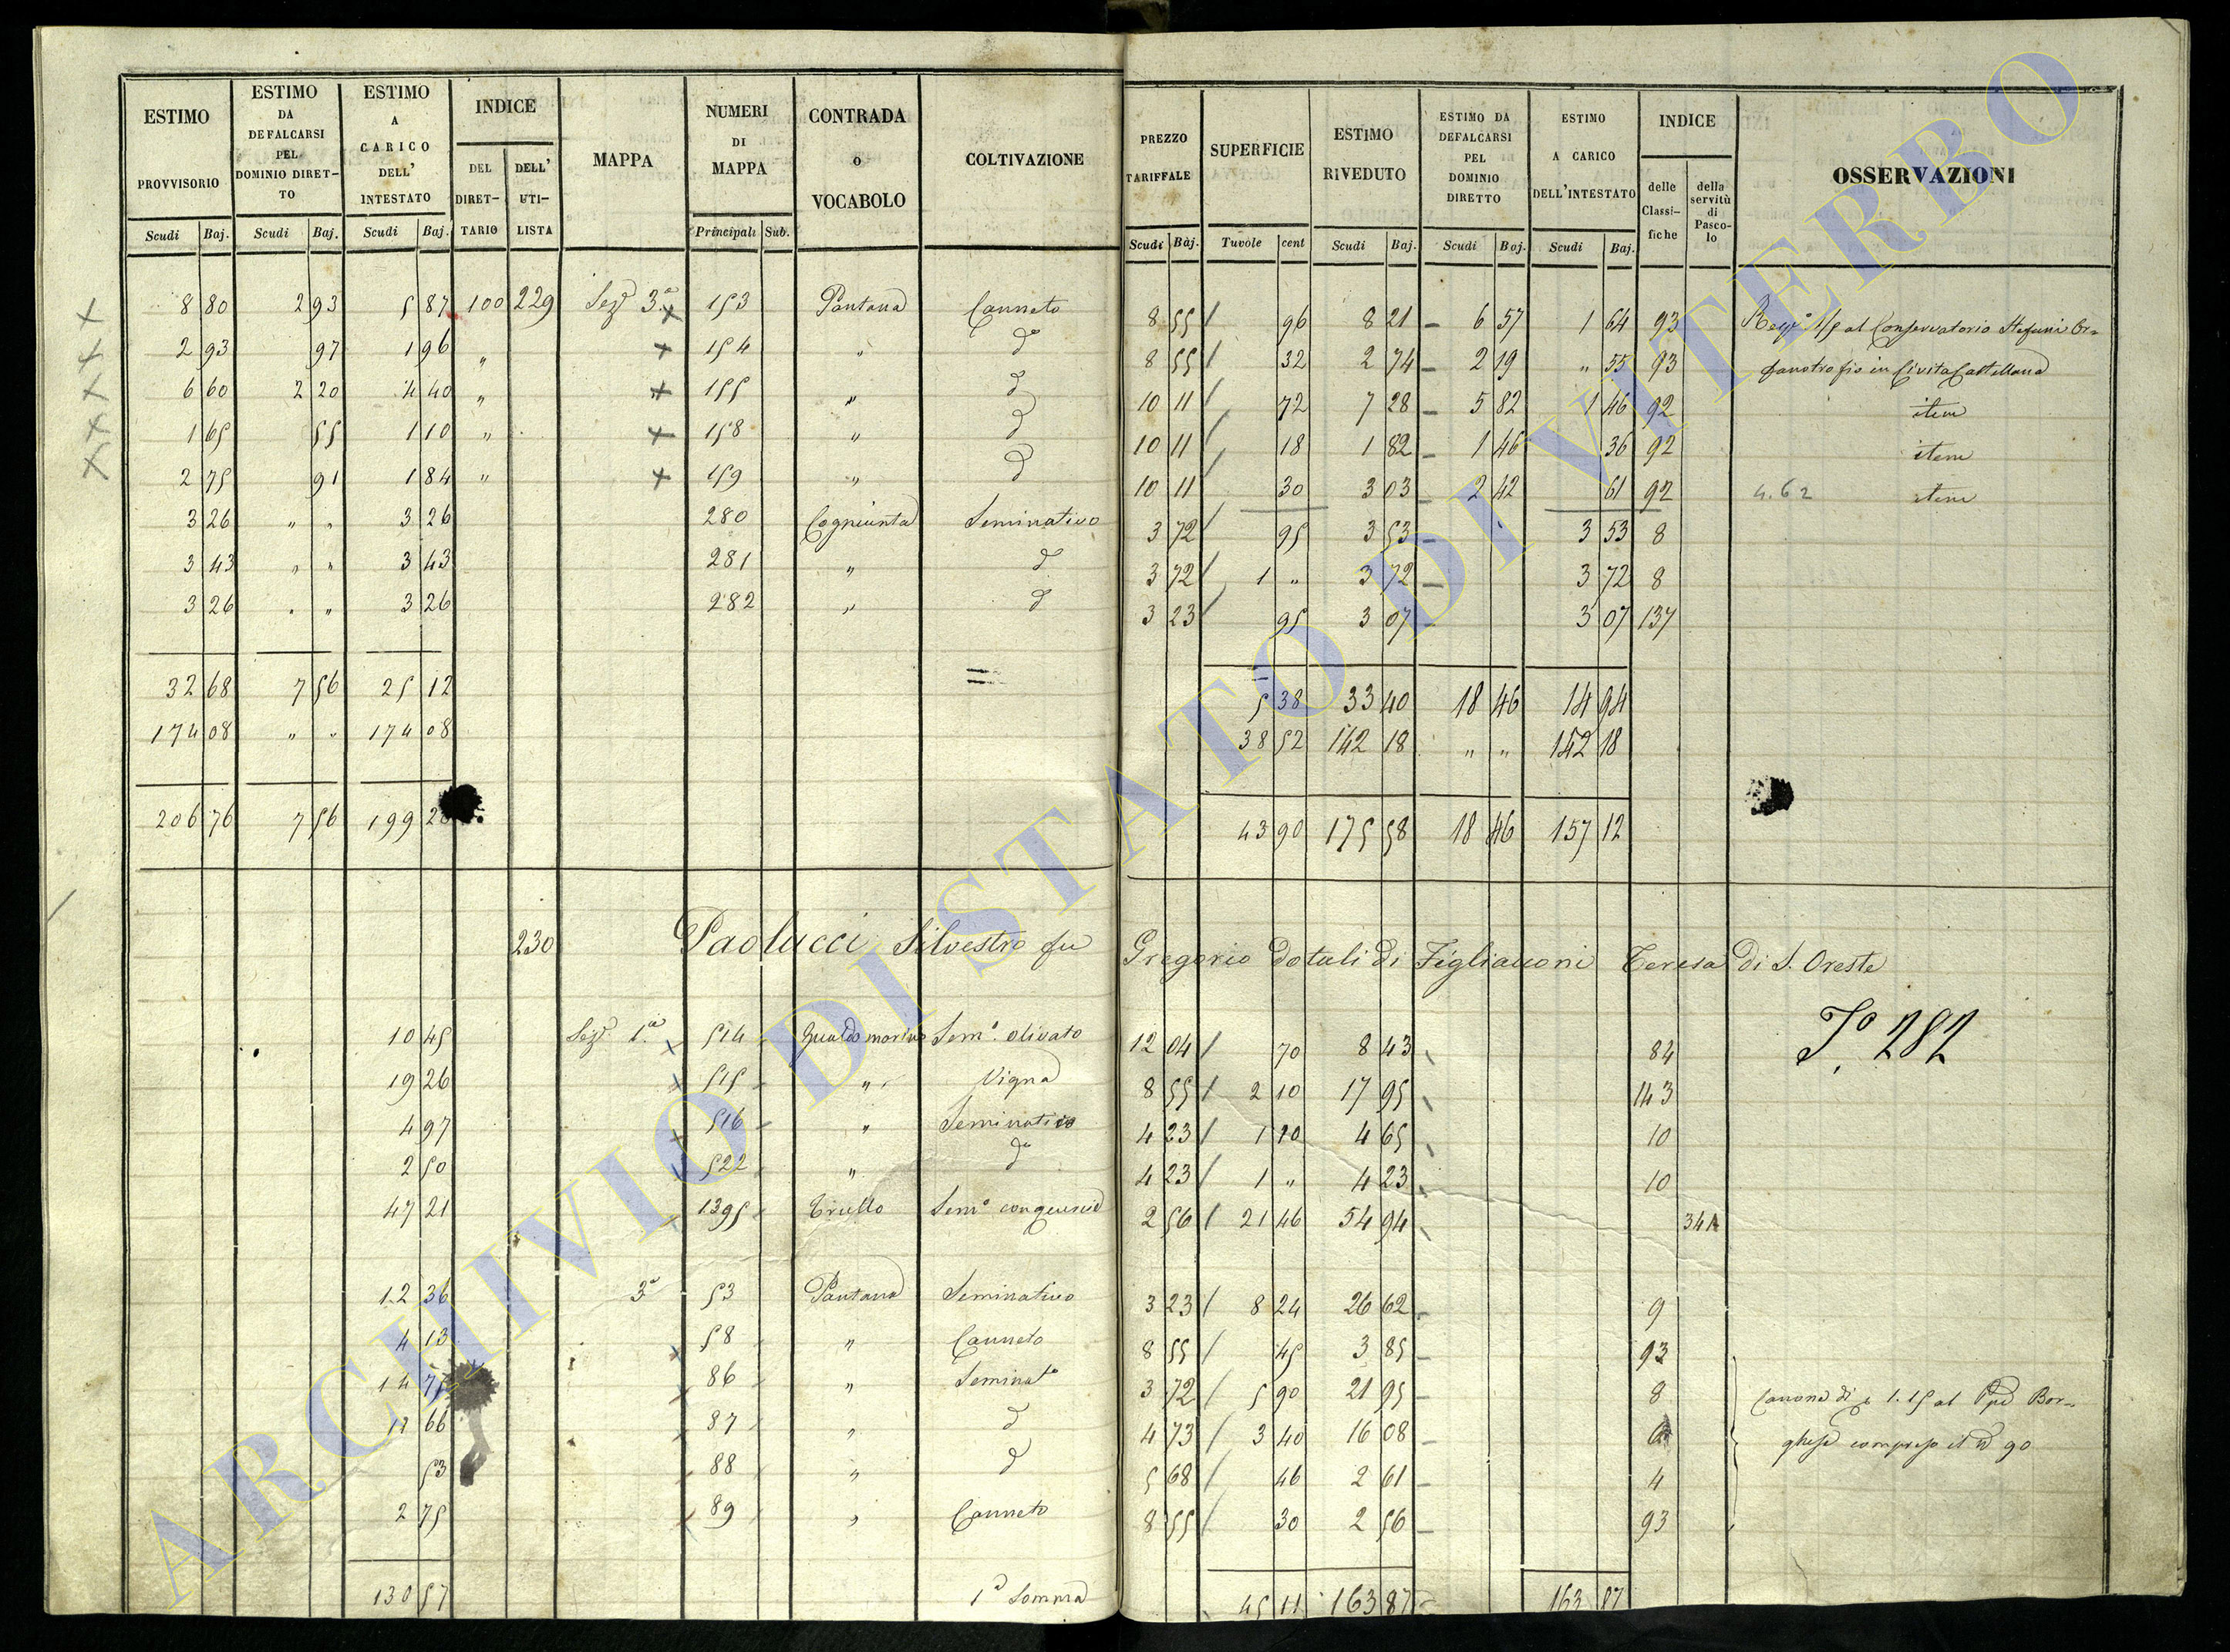 ESTIMO PROVVISORIO | ESTIMO DA DEFALCARSI PEL DOMINIO DIRETTO | ESTIMO A CARICO DELL' INTESTATO | INDICE DEL DIRETTARIO | DELL' UTILISTA | MAPPA | NUMERI DI MAPPA | CONTRADA o VOCABOLO | COLTIVAZIONE | PREZZO TARIFFALE | SUPERFICIE | ESTIMO RIVEDUTO | ESTIMO DA DEFALCARSI PEL DOMINIO DIRETTO | ESTIMO A CARICO DELL'INTESTATO | INDICE delle Classifiche | della servitù di Pascolo | OSSERVAZIONI
Scudi Baj. | Scudi Baj. | Scudi Baj. | Principali Sub. | Scudi Baj. | Tavole cent | Scudi Baj. | Scudi Baj. | Scudi Baj.
8 80 | 2 93 | 5 87 | 100 | 229 | Sez.e 3.a × | 153 | Pantana | Canneto | 8 55 | 96 | 8 21 | 6 57 | 1 64 | 93 | 1/5 al Conservatorio Or=
2 93 | 97 | 1 96 | " | × | 154 | " | d.o | 8 55 | 32 | 2 74 | 2 19 | " 55 | 93 | fanotrofio in Civita Castellana
6 60 | 2 20 | 4 40 | " | × | 155 | " | d | 10 11 | 72 | 7 28 | 5 82 | 1 46 | 92 | item
1 65 | 55 | 1 10 | " | × | 158 | " | d | 10 11 | 18 | 1 82 | 1 46 | 36 | 92 | item
2 75 | 91 | 1 84 | " | × | 159 | " | d | 10 11 | 30 | 3 03 | 2 42 | 61 | 92 | 4.62 item
3 26 | " " | 3 26 | 280 | Seminativo | 3 72 | 95 | 3 53 | 3 53 | 8
3 43 | " " | 3 43 | 281 | " | d | 3 72 | 1 " | 3 72 | 3 72 | 8
3 26 | " " | 3 26 | 282 | " | d | 3 23 | 95 | 3 07 | 3 07 | 137
32 68 | 7 56 | 25 12 | 5 38 | 33 40 | 18 46 | 14 94
174 08 | " " | 174 08 | 38 52 | 142 18 | " " | 142 18
206 76 | 7 56 | 199 20 | 43 90 | 175 58 | 18 46 | 157 12
230 Paolucci Silvestro fu Gregorio Dotali di Figliacconi Teresa di S. Oreste
10 45 | Sez.e 1.a × | 514 | Sem.o olivato | 12 04 | 70 | 8 43 | 84 | 282
19 26 | × | 515 | " | Vigna | 8 55 | 2 10 | 17 95 | 143
4 97 | × | 516 | " | Seminativo | 4 23 | 1 10 | 4 65 | 10
2 50 | 522 | " | d.o | 4 23 | 1 " | 4 23 | 10
47 21 | 1395 | Trullo | Sem.o | 2 56 | 21 46 | 54 94 | 34
12 36 | 3.a | 53 | Pantana | Seminativo | 3 23 | 8 24 | 26 62 | 9
4 13 | × | 58 | " | Canneto | 8 55 | 45 | 3 85 | 93
14 75 | × | 86 | " | Seminat.o | 3 72 | 5 90 | 21 95 | 8 | Canone di 1.15 al Bor=
66 | 87 | " | d | 4 73 | 3 40 | 16 08 | ghese compreso il n 90
53 | 88 | " | d | 5 68 | 46 | 2 61 | 4
2 75 | × | 89 | " | Canneto | 8 55 | 30 | 2 56 | 93
130 57 | 1.a Somma | 45 11 | 163 87 | 163 87
ARCHIVIO DI STATO DI VITERBO